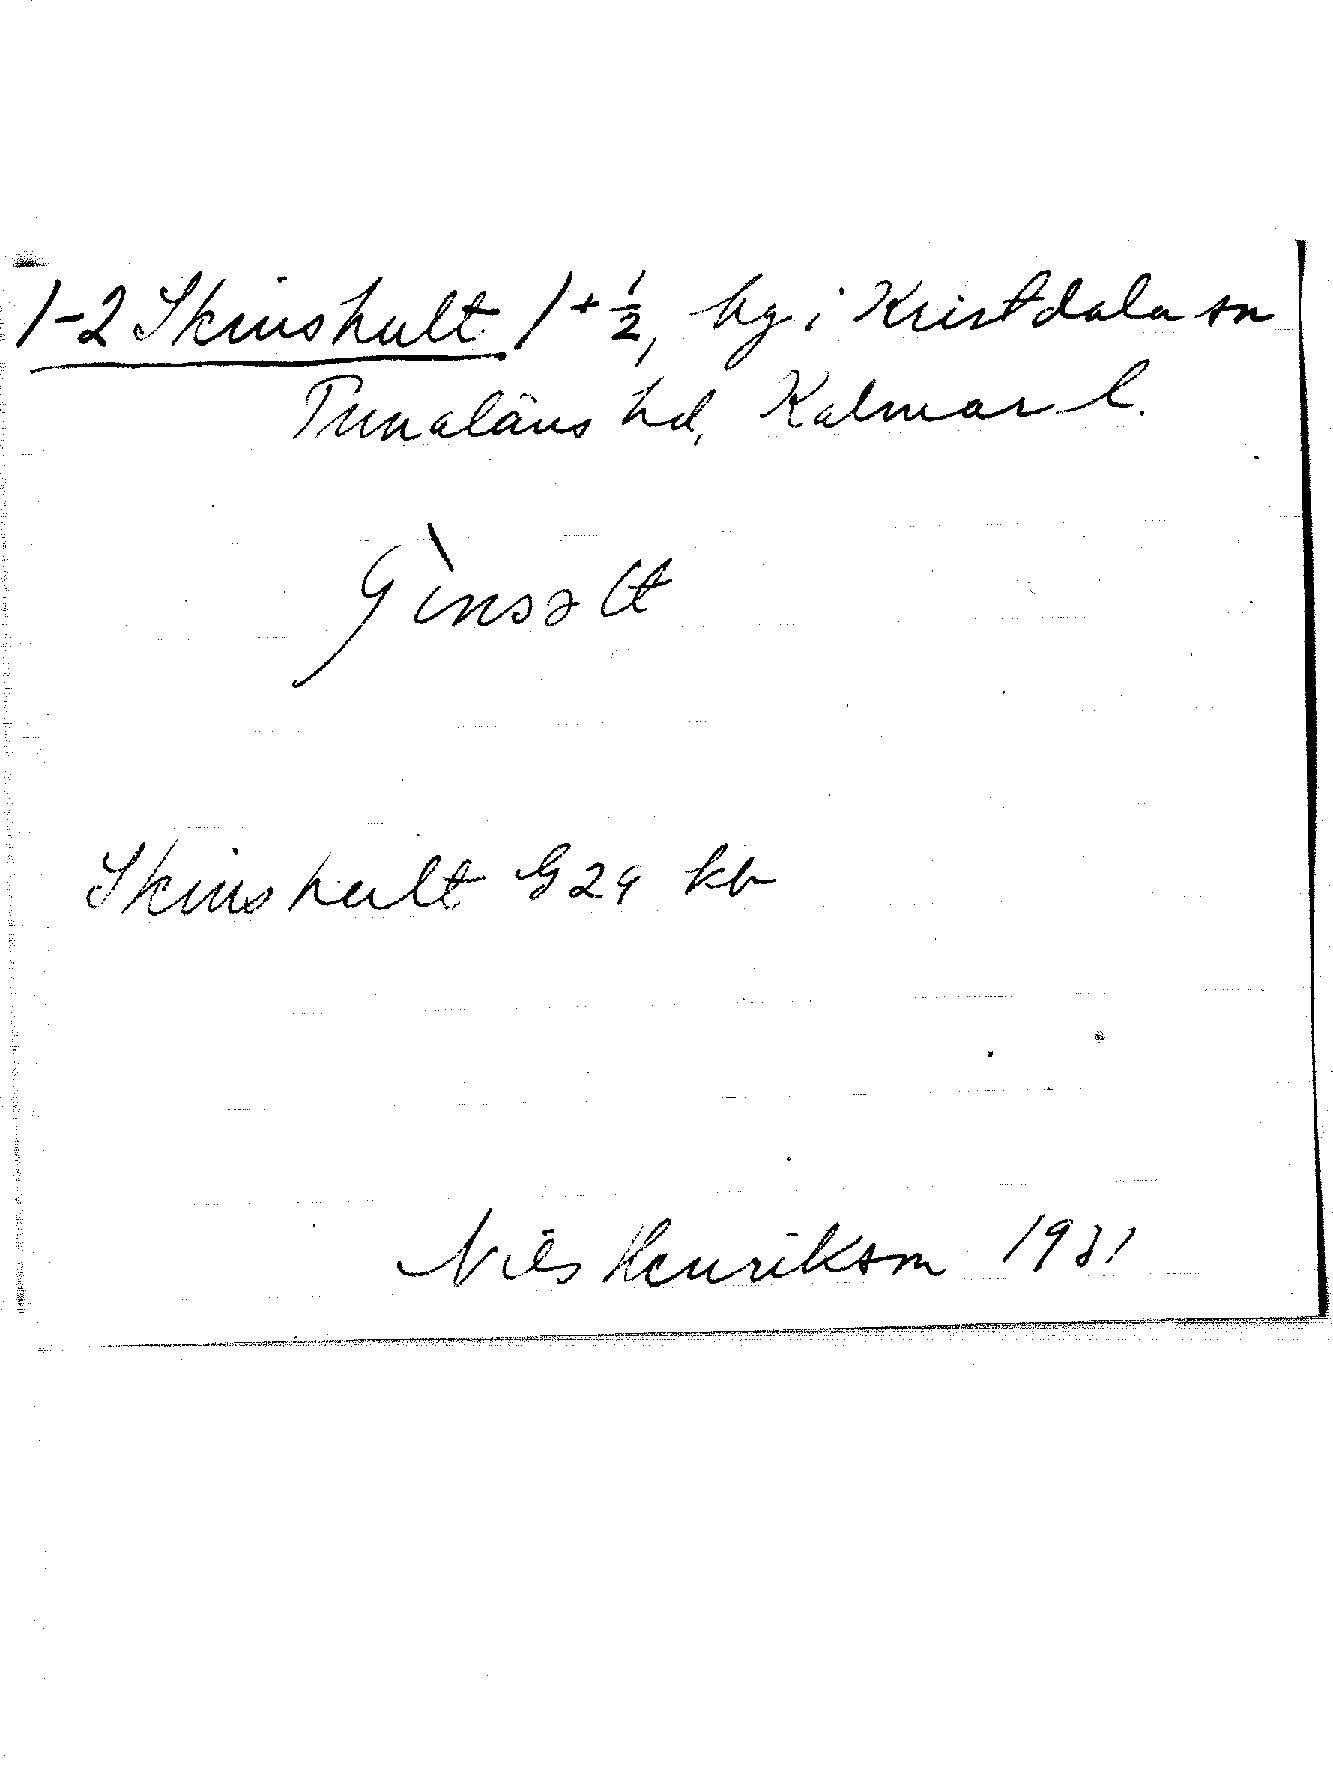 1-2 Skinshult 1+½, by i Kristdala sn
Tunaläns hd, Kalmar l.
Skinshult G29 kb
Nils Henrikson 1931